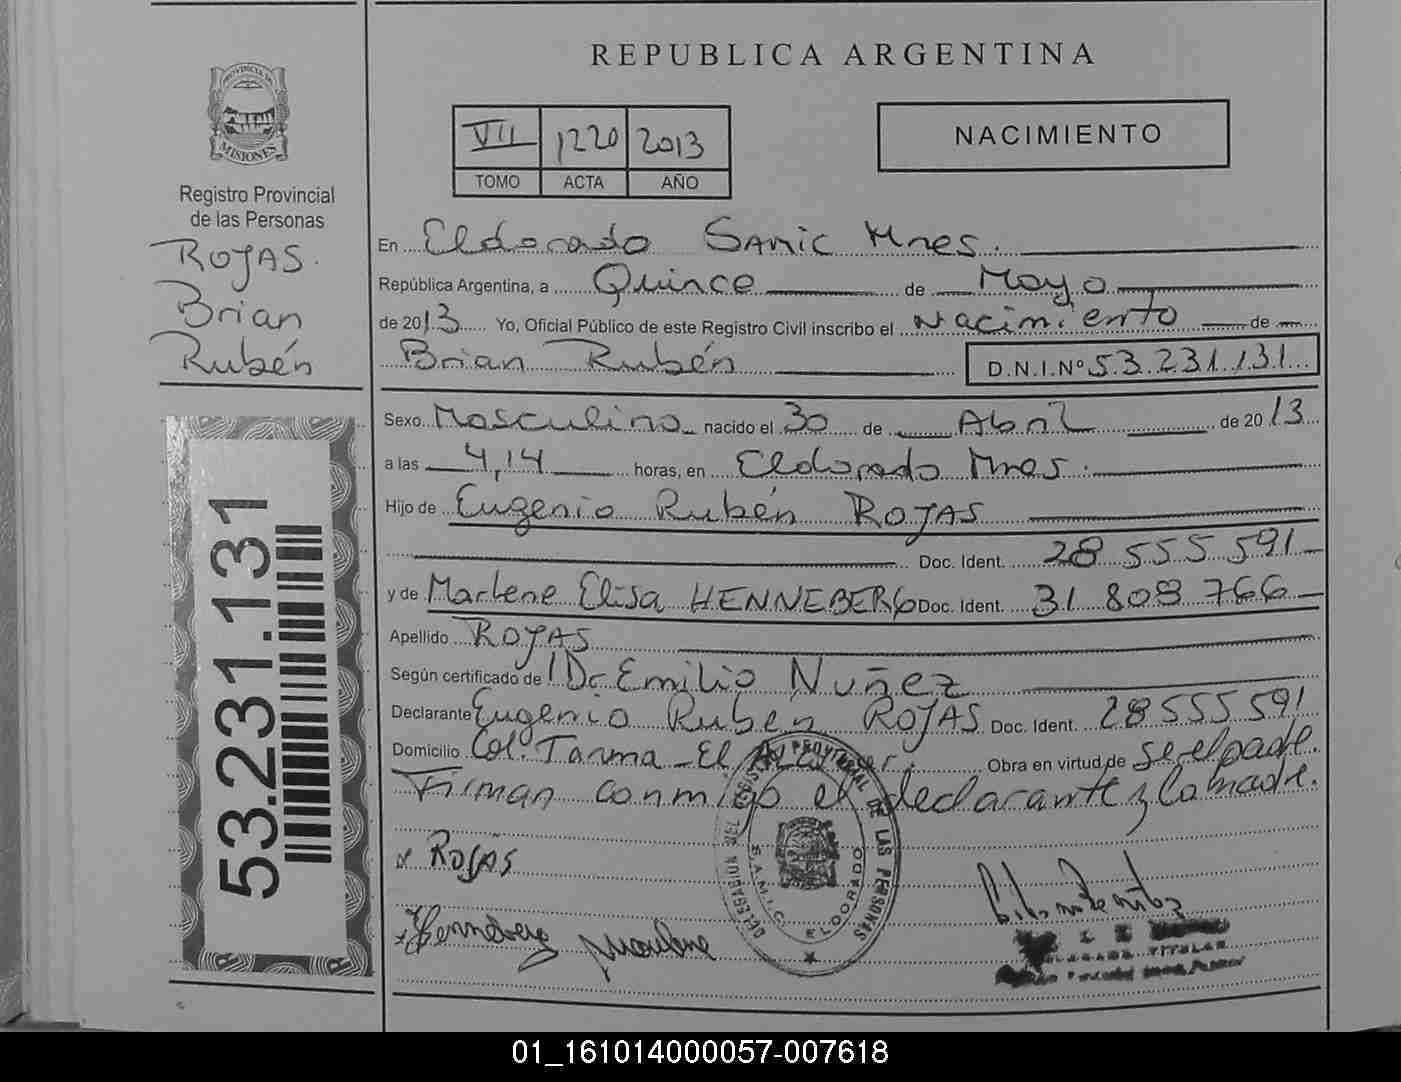 REPUBLICA ARGENTINA
PROVINCIA DE
MISIONES
Registro Provincial
de las Personas
ROJAS.
Brian
Rubén
VII 1220 2013
TOMO ACTA AÑO
NACIMIENTO
En Eldorado SAMIC Mnes.
República Argentina, a Quince de Mayo
de 2013 Yo, Oficial Público de este Registro Civil inscribo el Nacimiento de
Brian Rubén D.N.I.Nº 53.231.131
Sexo Masculino nacido el 30 de Abril de 2013
a las 4,14 horas, en Eldorado Mnes.
Hijo de Eugenio Rubén ROJAS
Doc. Ident. 28 555 591
y de Marlene Elisa HENNEBERG Doc. Ident. 31 808 766
Apellido ROJAS
Según certificado de Dr Emilio Nuñez
Declarante Eugenio Rubén ROJAS Doc. Ident. 28 555 591
Domicilio Col. Tarma - El Obra en virtud de ser el padre.
Firman conmigo el declarante y la madre.
53.231.131
x ROJAS
x Henneberg Marlene
DELEGACION DEL REGISTRO PROVINCIAL DE LAS PERSONAS
S.A.M.I.C. ELDORADO
TITULAR
01_161014000057-007618